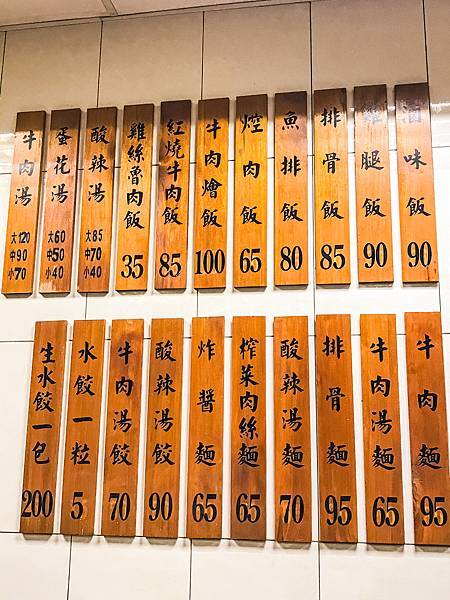 滷味飯 90
雞腿飯 90
排骨飯 85
魚排飯 80
焢肉飯 65
牛肉燴飯 100
紅燒牛肉飯 85
雞絲魯肉飯 35
酸辣湯
大85
中70
小40
蛋花湯
大60
中50
小40
牛肉湯
大120
中90
小70
牛肉麵 95
牛肉湯麵 65
排骨麵 95
酸辣湯麵 70
榨菜肉絲麵 65
炸醬麵 65
酸辣湯餃 90
牛肉湯餃 70
水餃一粒 5
生水餃一包 200